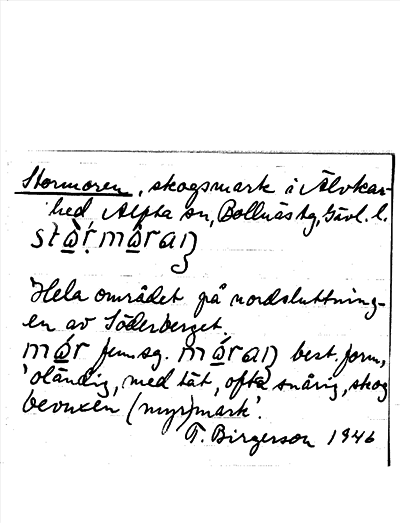 Stormoren, skogsmark i Älvkar-
hed Alfta sn, Bollnäs tg, Gävl. l.
stò̱ṛmò̱raŋ
Hela området på nordsluttning-
en av Söderberget.
mó̱r fem. sg. mó̱raŋ best. form,
'oländig, med tät, ofta snårig, skog
bevuxen (myr)mark'.
T. Birgerson 1946